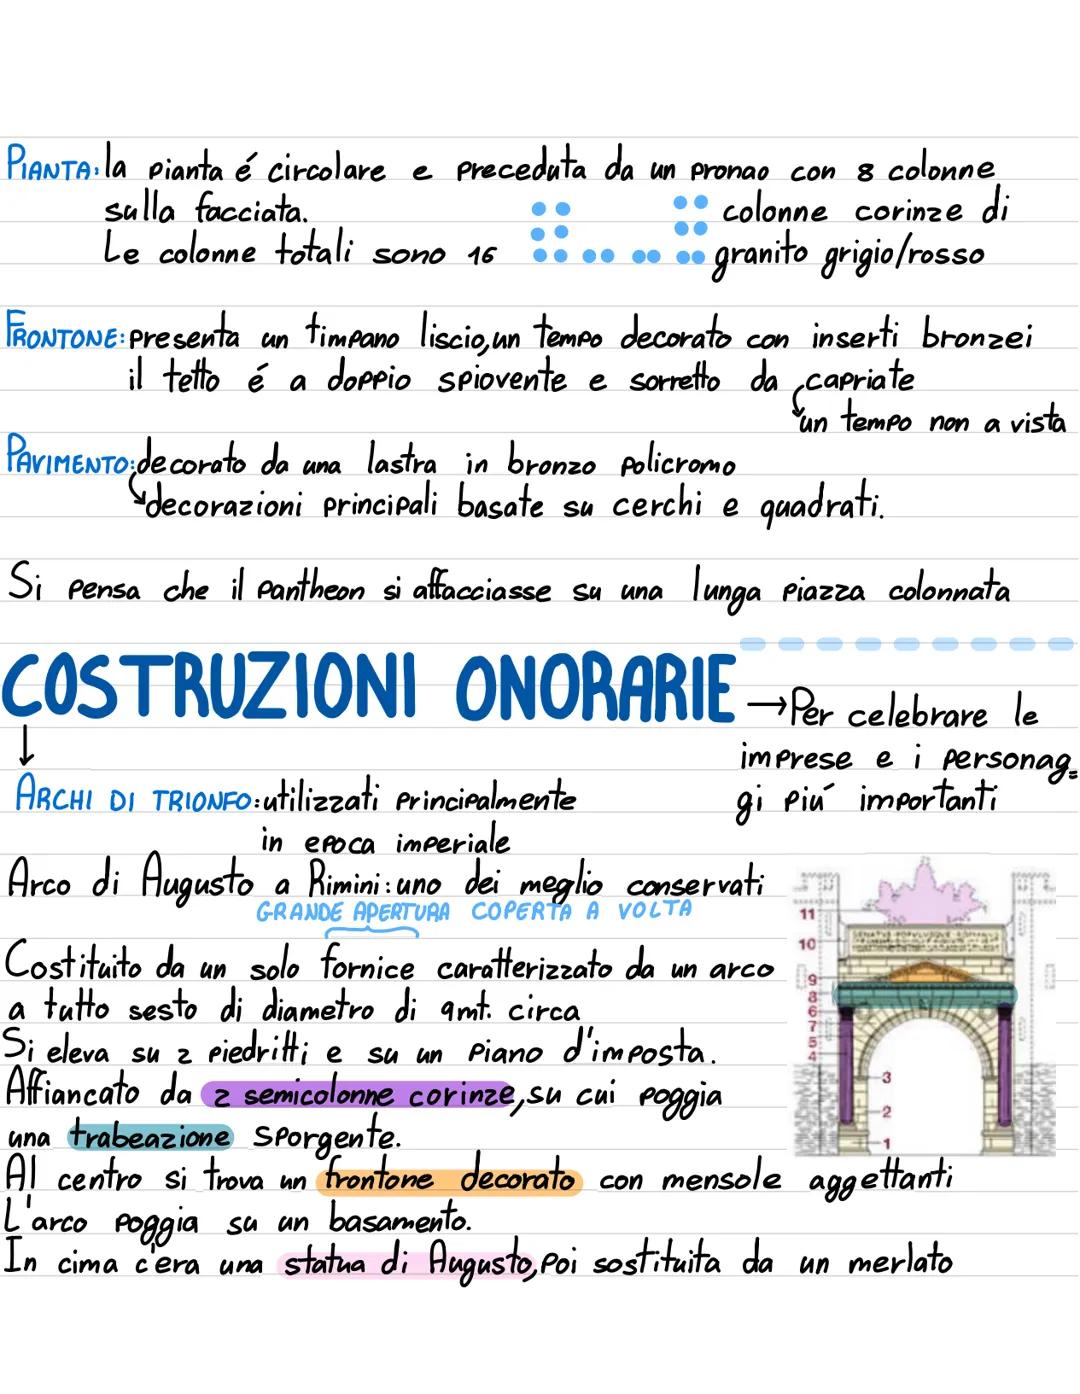 PIANTA: la pianta é circolare e preceduta da un pronao con 8 colonne
sulla facciata.
Le colonne totali sono 16
colonne corinze di
granito grigio/rosso
FRONTONE: presenta un timpano liscio, un tempo decorato con inserti bronzei
il tetto é a doppio spiovente e sorretto da capriate
un tempo non a vista
PAVIMENTO: decorato da una lastra in bronzo policromo
decorazioni principali basate su cerchi e quadrati.
Si pensa che il Pantheon si affacciasse su una lunga piazza colonnata
COSTRUZIONI ONORARIE → Per celebrare le
imprese e i personag=
gi piú importanti
ARCHI DI TRIONFO: utilizzati principalmente
in epoca imperiale
Arco di Augusto a Rimini: uno dei meglio conservati
GRANDE APERTURA COPERTA A VOLTA
Costituito da un solo fornice caratterizzato da un arco
a tutto sesto di diametro di 9mt. circa
Si eleva su 2 piedritti e su un piano d'imposta.
Affiancato da 2 semicolonne corinze, su cui poggia
una trabeazione sporgente.
Al centro si trova un frontone decorato con mensole aggettanti
L'arco poggia su un basamento.
In cima c'era una statua di Augusto, poi sostituita da un merlato
11
10
9
8
6
7
5
4
3
2
1